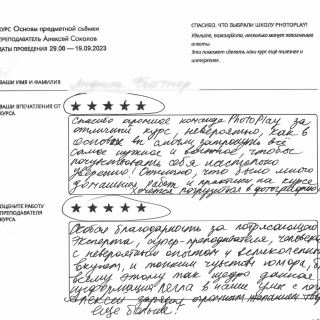 КУРС Основы предметной съёмки
ПРЕПОДАВАТЕЛЬ Алексей Соколов
ДАТЫ ПРОВЕДЕНИЯ 29.08 — 19.09.2023
СПАСИБО, ЧТО ВЫБРАЛИ ШКОЛУ PHOTOPLAY!
Уделите, пожалуйста, несколько минут заполнению
анкеты.
Это поможет сделать наш курс ещё полезнее и
интереснее.
ВАШИ ИМЯ И ФАМИЛИЯ
ВАШИ ВПЕЧАТЛЕНИЯ ОТ
КУРСА
★ ★ ★ ★ ★
Спасибо огромное команде PhotoPlay за
отличный курс, невероятно, как в
самое нужное и
почувствовать себя настолько
уверенно! Отлично, что было много
домашних работ и практики на курсе
хочется погрузиться в фотографию
ОЦЕНИТЕ РАБОТУ
ПРЕПОДАВАТЕЛЯ
КУРСА
★ ★ ★ ★ ★
Особая благодарность за потрясающего
эксперта, супер-преподавателя, человека
с невероятным опытом и великолепным
вкусом, и тонким чувством юмора,
всему этому так щедро данная
информация легла в наши умы с
Алексей зарядил огромным желанием
еще больше!